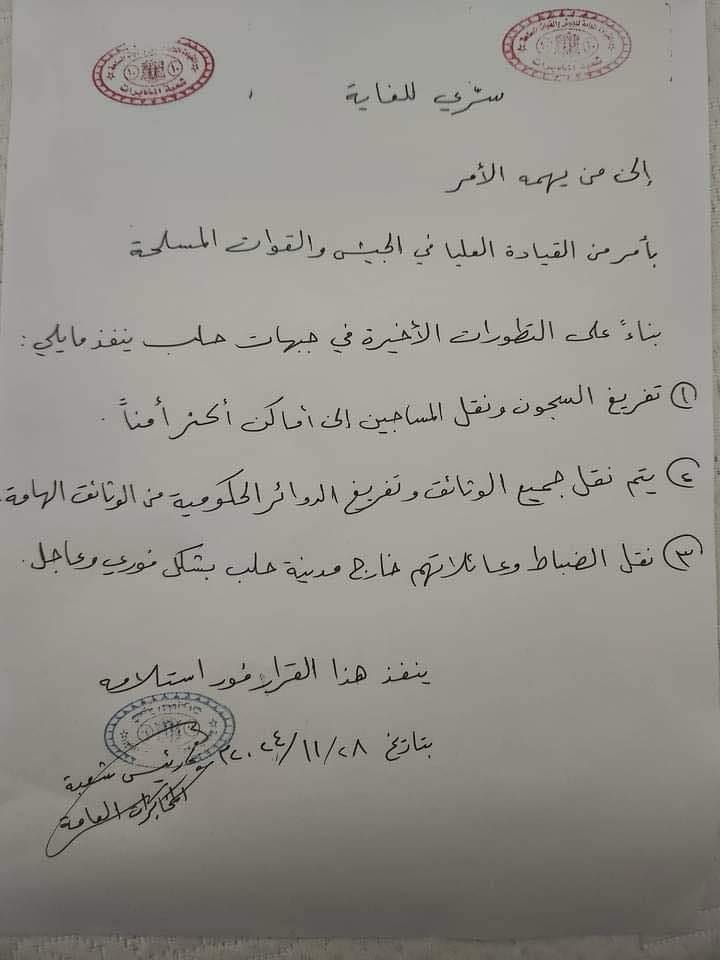 القيادة العامة للجيش والقوات المسلحة
شعبة المخابرات
سرّي للغاية
إلى من يهمه الأمر
بأمر من القيادة العليا في الجيش والقوات المسلحة
بناءً على التطورات الأخيرة في جبهات حلب ينفذ مايلي :
١ تفريغ السجون ونقل المساجين إلى أماكن أكثر أمناً .
٢ يتم نقل جميع الوثائق وتفريغ الدوائر الحكومية من الوثائق الهامة .
٣ نقل الضباط وعائلاتهم خارج مدينة حلب بشكل فوري وعاجل .
ينفذ هذا القرار فور استلامه
بتاريخ ٢٠٢٤/١١/٢٨م
رئيس شعبة
المخابرات العامة